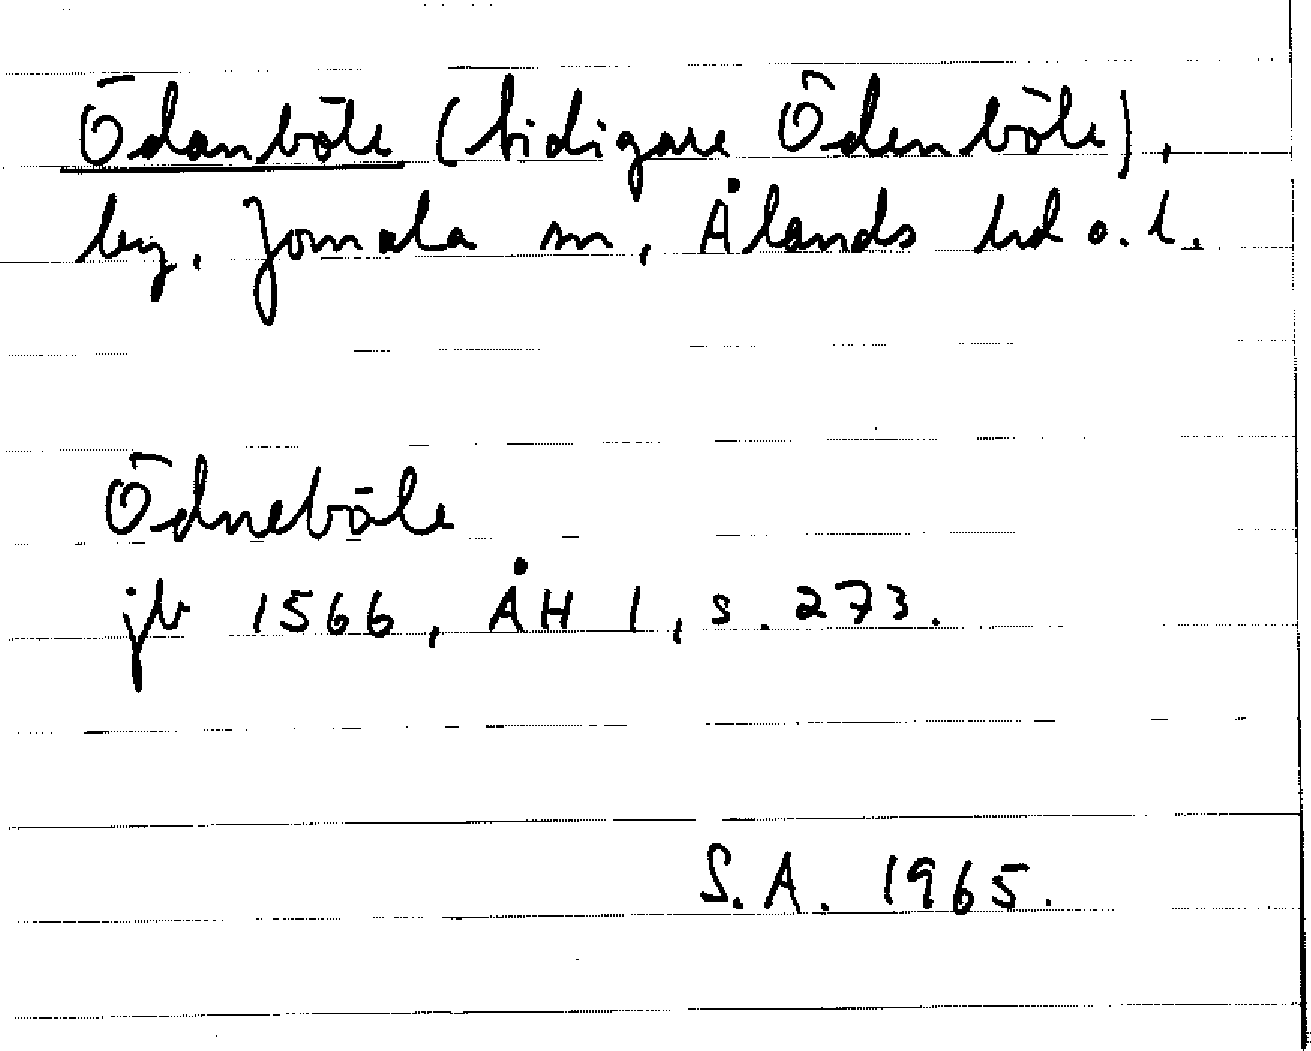 Ödanböle (tidigare Ödenböle),
by, Jomala sn, Ålands hd o. l.
Ödneböle
jb 1566, ÅH 1, s. 273.
S.A. 1965.